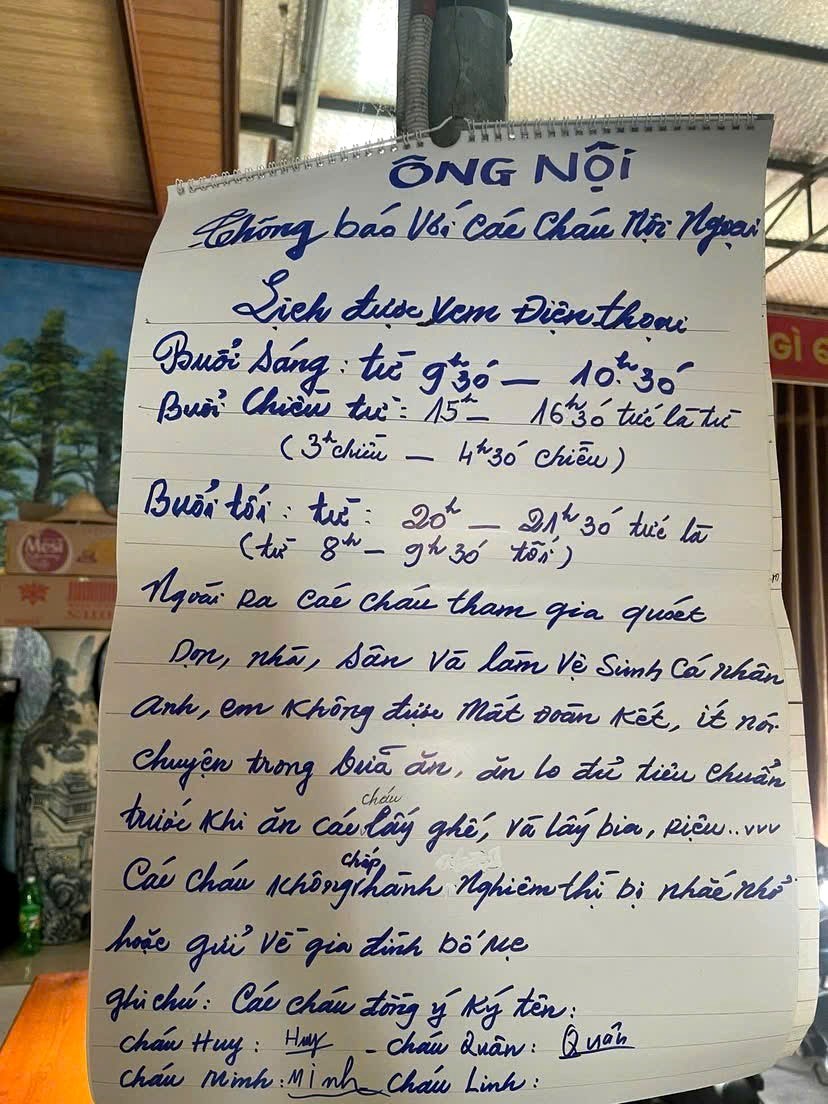 ÔNG NỘI
Thông báo Với các cháu Nội Ngoại
Lịch được xem Điện thoại
Buổi sáng: từ 9h30 - 10h30
Buổi Chiều từ: 15h - 16h30 tức là từ
(3h chiều - 4h30 chiều)
Buổi tối: từ: 20h - 21h30 tức là
(từ 8h - 9h30 tối)
Ngoài ra các cháu tham gia quét
Dọn, nhà, sân và làm vệ sinh cá nhân
anh, em không được mất đoàn kết, ít nói
chuyện trong bữa ăn, ăn lo đủ tiêu chuẩn
trước khi ăn các cháu lấy ghế, và lấy bia, rượu..vvv
Các cháu không chấp hành nghiêm thì bị nhắc nhở
hoặc gửi về gia đình bố mẹ
ghi chú: Các cháu đồng ý ký tên:
cháu Huy: Huy - cháu Quân: Quân
cháu Minh: Minh - cháu Linh:
GÌ
Mesi